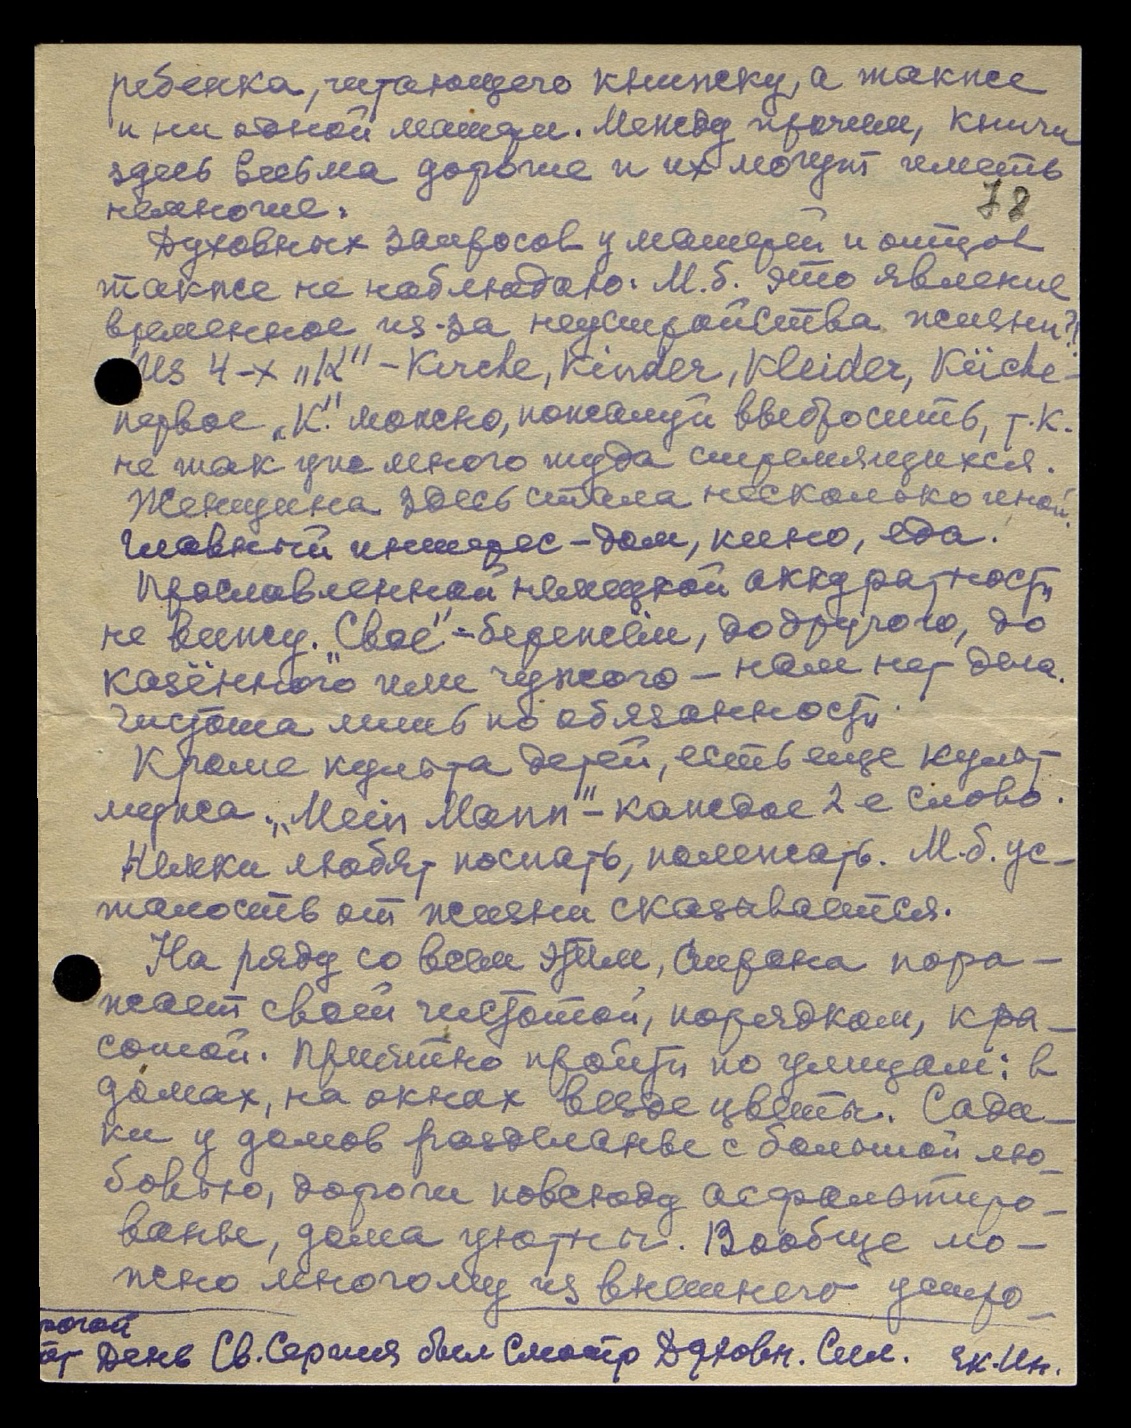 ребенка, читающего книжку, а также
и ни одной матери. Между прочим, книги
здесь весьма дорогие и их могут иметь
немногие.
78
Духовных запросов у матерей и отцов
также не наблюдаю. М.б. это явление
временное из-за неустройства жизни?!
Из 4-х „К" - Kirche, Kinder, Kleider, Küche -
первое „К." можно, пожалуй выбросить, т.к.
не так уже много туда стремящихся.
Женщина здесь стала несколько иной.
Главный интерес - дом, кино, еда.
Прославленной немецкой аккуратности
не вижу. „Своё" - бережём, до другого, до
„казённого" или чужого - нам нет дела.
Чистота лишь по обязанности.
Кроме культа детей, есть еще культ
мужа. „Mein Mann" - каждое 2-е слово.
Немки любят поспать, полежать. М.б. ус-
талость от жизни сказывается.
На ряду со всем этим, страна пора-
жает своей чистотой, порядком, кра-
сотой. Приятно пройти по улицам: в
домах, на окнах везде цветы. Сади-
ки у домов разделаны с большой лю-
бовью, дороги повсюду асфальтиро-
ваны, дома уютны. Вообще мо-
жно многому из внешнего устро-
День Св. Сергия был смотр Духовн. Сил. Як. Ин.